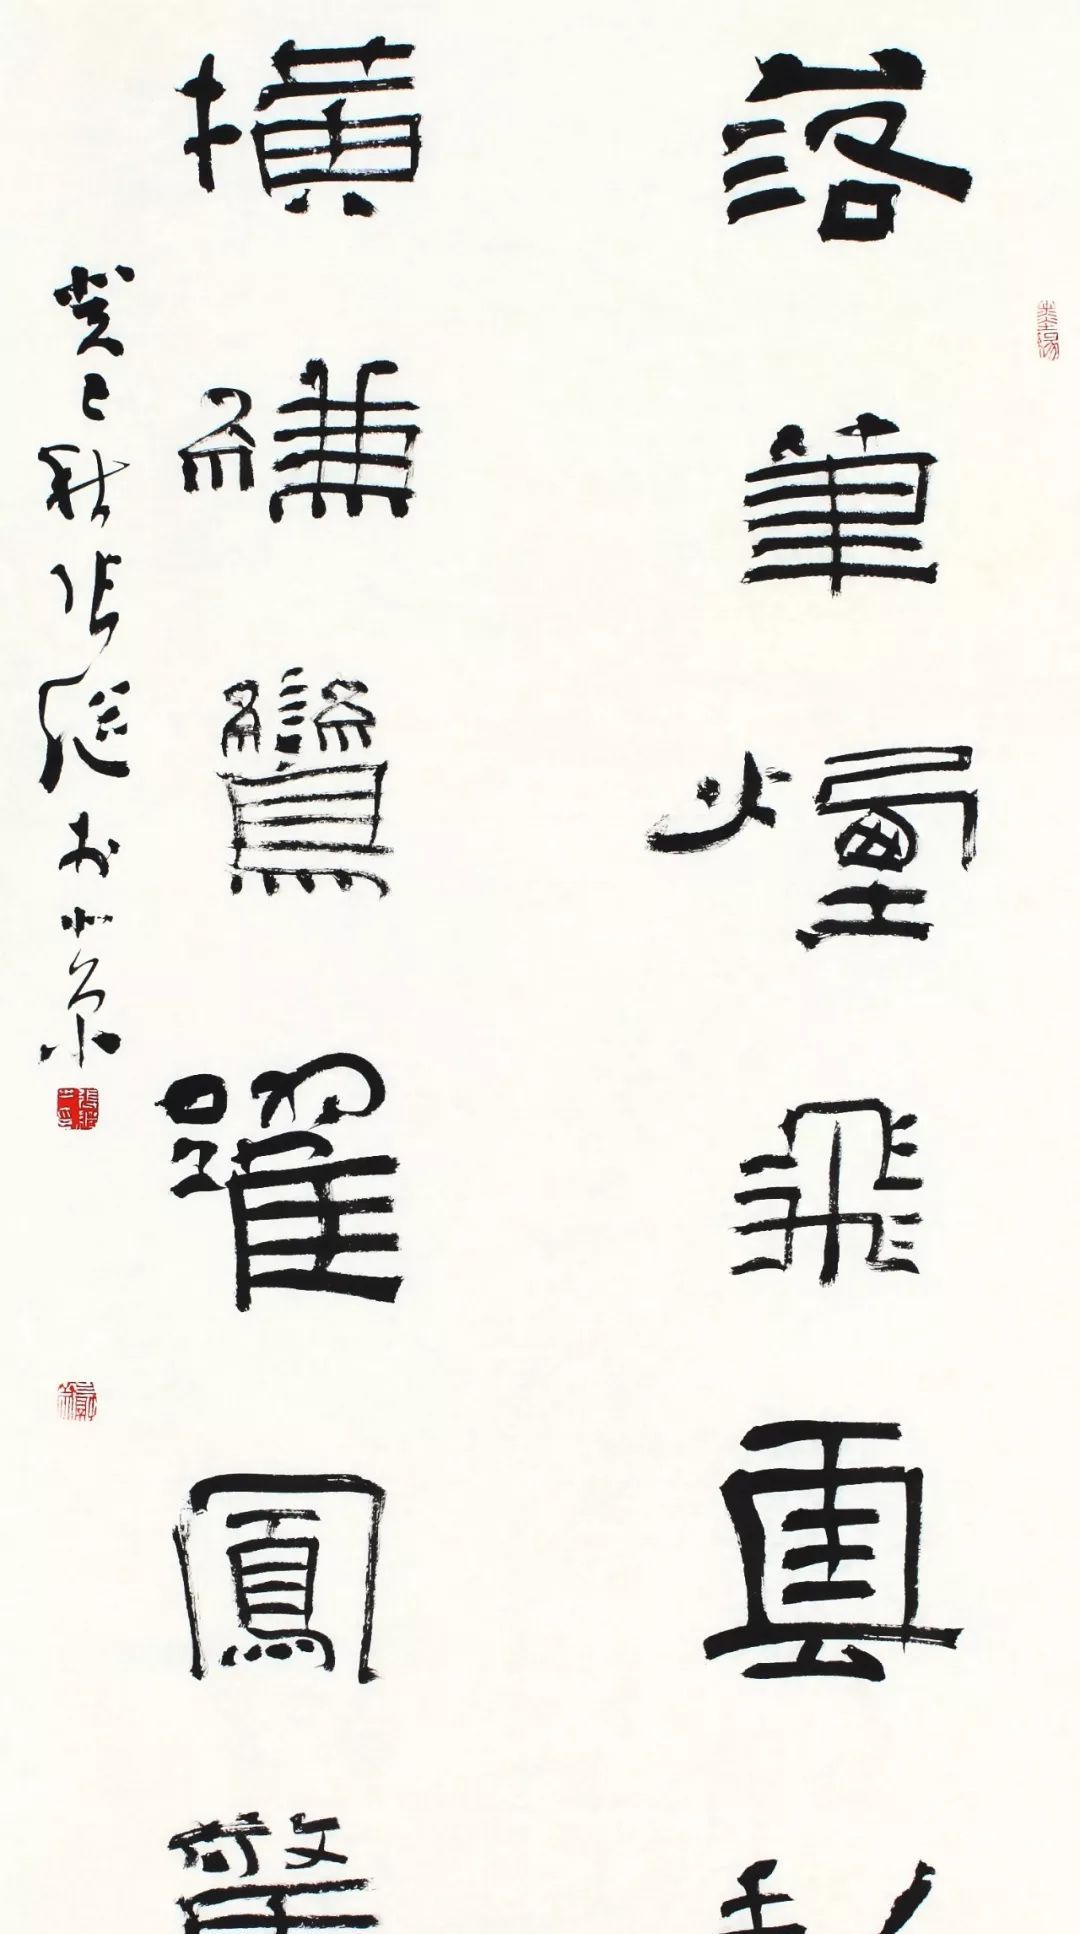 落筆煙飛雲
橫縑鸞躍鳳驚
癸巳秋張繼於北京